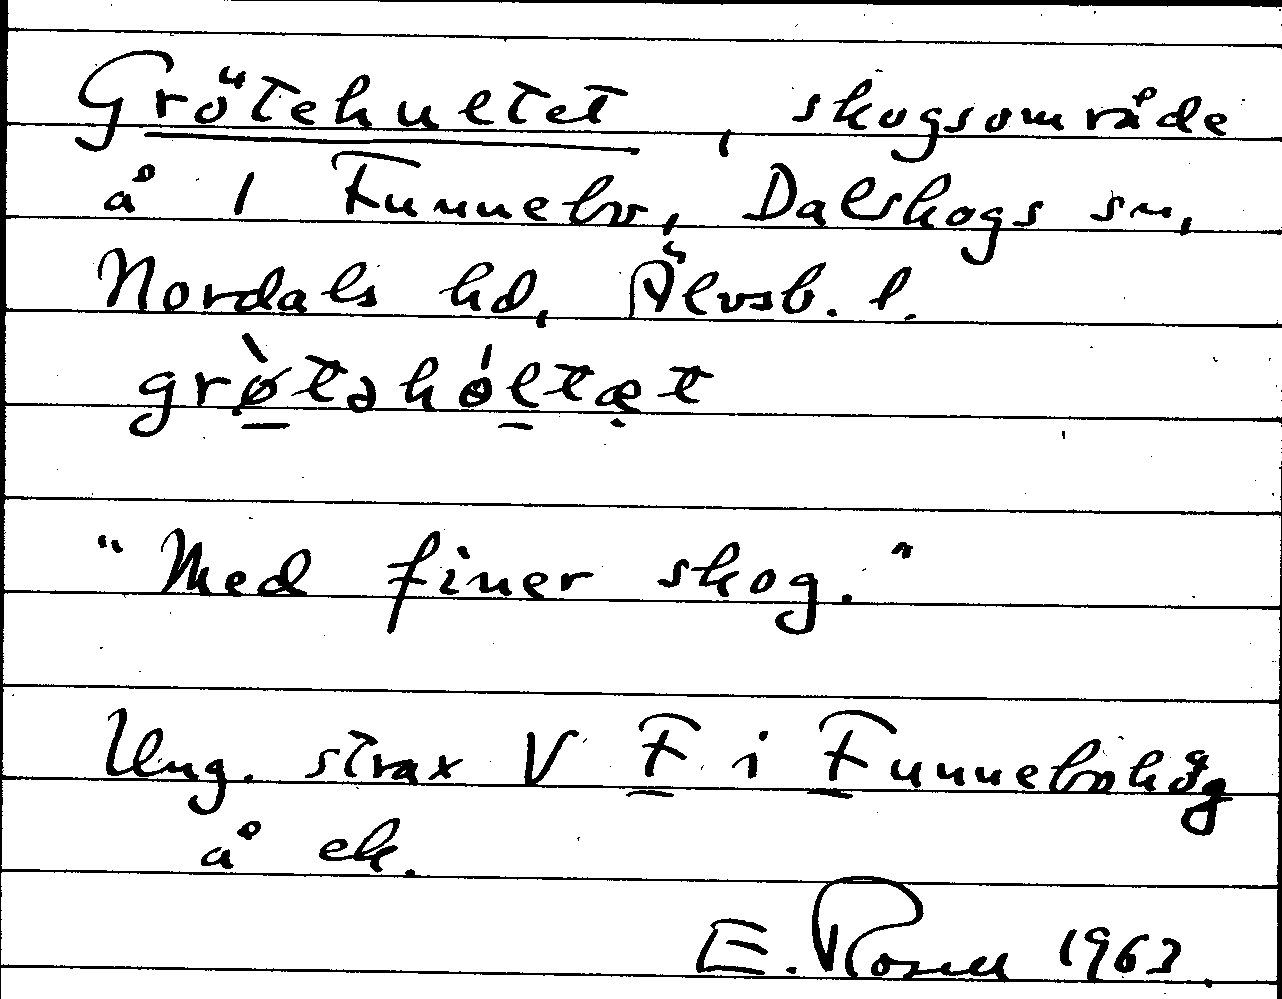 Grötehultet, skogsområde
å 1 Funnebo, Dalskogs sn,
Nordals hd, Älvsb. l.
grø̀təhóltæt
"Med finer skog."
Ung. strax V F i Funnebohög
å ek.
E. Rosell 1963.